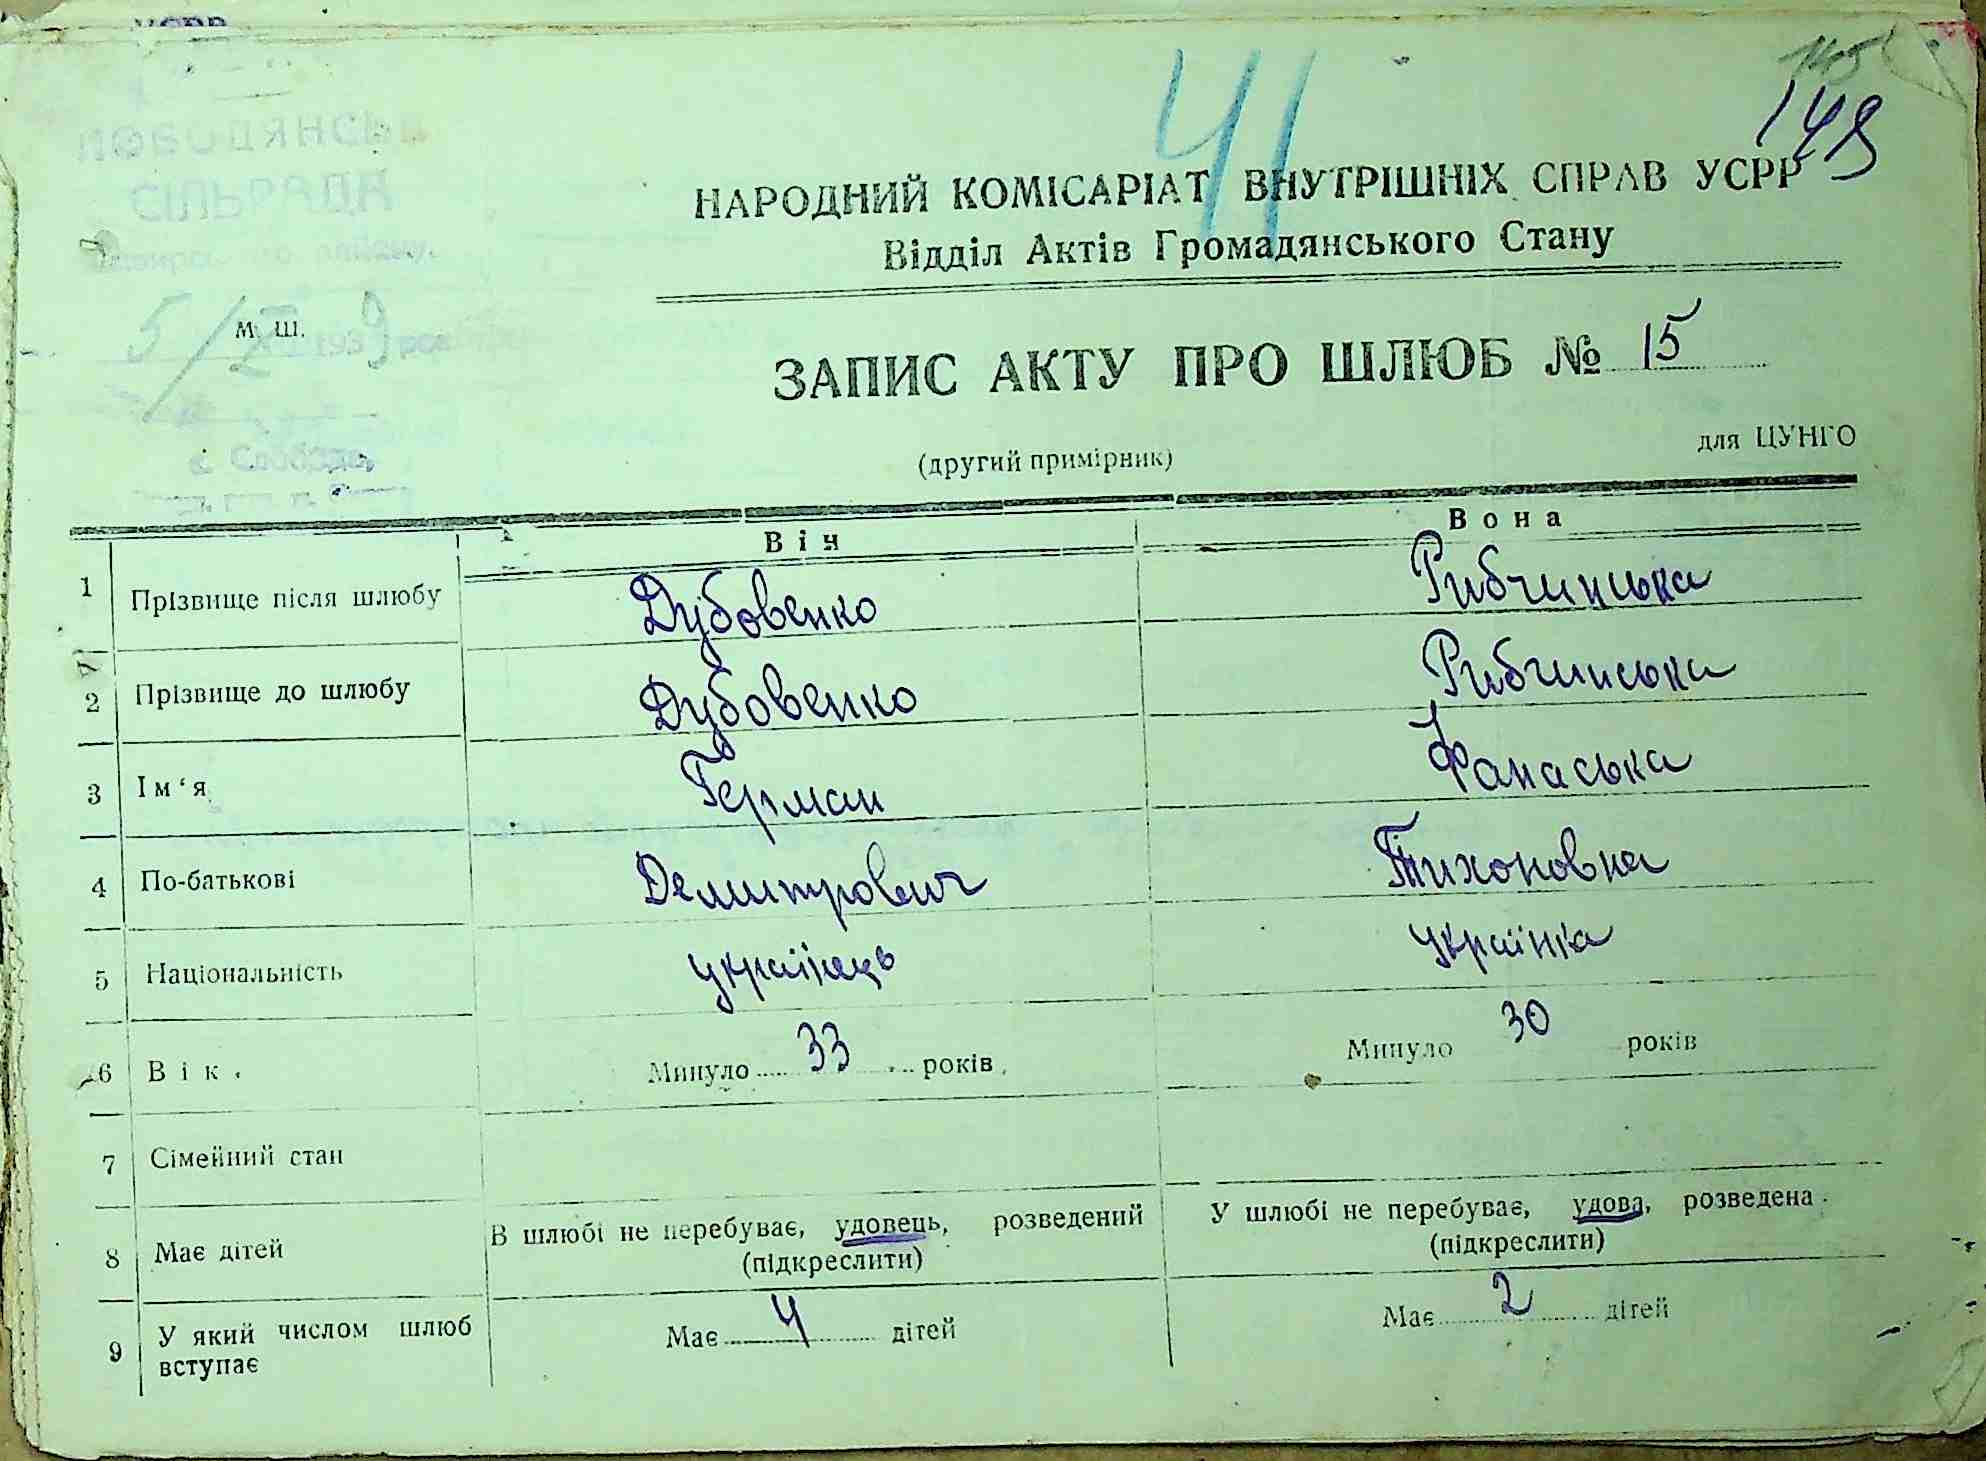 УСРР
145
149
41
СІЛЬРАДА
НАРОДНИЙ КОМІСАРІАТ ВНУТРІШНІХ СПРАВ УСРР
Відділ Актів Громадянського Стану
М. Ш.
5/X 1939 рос
ЗАПИС АКТУ ПРО ШЛЮБ № 15
(другий примірник)
для ЦУНГО
с. Слобода,
Він
Вона
1 Прізвище після шлюбу Дубовенко Рибчинська
2 Прізвище до шлюбу Дубовенко Рибчинська
3 Ім'я Герман Фанаська
4 По-батькові Демитрович Тихоновна
5 Національність українець українка
6 Вік. Минуло 33 років. Минуло 30 років
7 Сімейний стан
8 Має дітей В шлюбі не перебуває, удовець, розведений У шлюбі не перебуває, удова, розведена.
(підкреслити) (підкреслити)
9 У який числом шлюб вступає Має 4 дітей Має 2 дітей